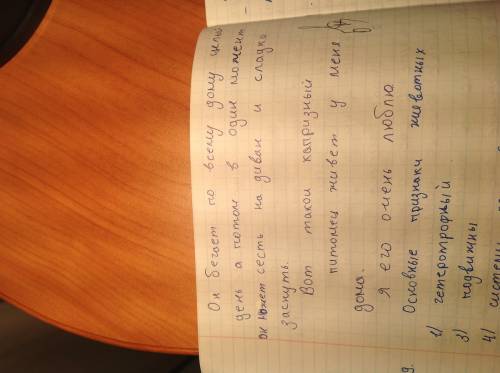 Он бегает по всему дому целый
день а потом в один момент
он может сесть на диван и сладко
заснуть.
Вот такой капризный
питомец живет у меня
дома.
Я его очень люблю
9. Основные признаки жывотных
1) гетеротрофный
3) подвижны
4)